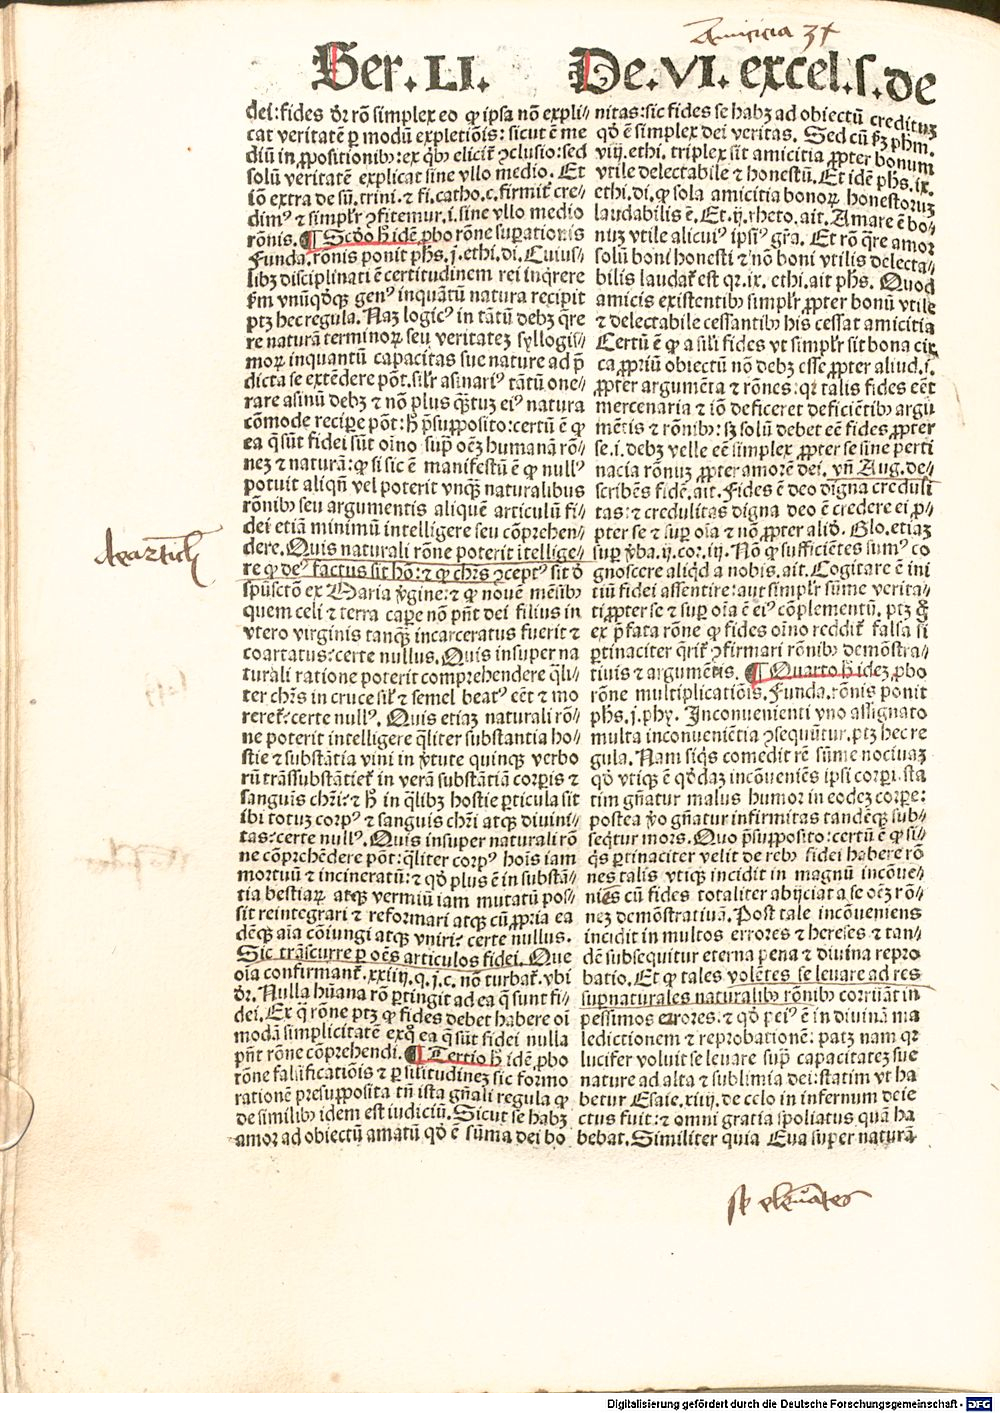 Amicicia 3x
Ser. LI. De. VI. excel. s. de
dei: fides dr̄ rō simplex eo ꝙ ipsa nō expli⸗
cat veritatē ꝑ modū expletiōis: sicut ē me
diū in ꝓpositionibꝰ: ex qͥbꝰ elicit᷑ ꝯclusio: sed
solū veritatē explicat sine vllo medio. Et
iō extra de sū. trini. ⁊ fi. catho. c. firmit᷑ cre⸗
dimꝰ ⁊ simpl'r ꝯfitemur. i. sine vllo medio
rōnis. ¶ Scd̓o h̄ idē ꝓbo rōne suꝑationis
Funda. rōnis ponit phs. j. ethi. di. Cuius⸗
libꝫ disciplinati ē certitudinem rei inq̄rere
ẜm vnūqḋqꝫ genꝰ inquātū natura recipit
ptꝫ hec regula. Naꝫ logicꝰ in tātū debꝫ q̄re
re naturā terminoꝝ seu veritateꝫ syllogis⸗
moꝝ inquantū capacitas sue nature ad p̄
dicta se extēdere pōt. sil'r asinariꝰ tātū one⸗
rare asinū debꝫ ⁊ nō plus qꝫtuꝫ eiꝰ natura
cōmode reciꝑe pōt: h̄ p̄supposito: certū ē ꝙ
ea q̄ sūt fidei sūt oīno sup̄ oēꝫ humanā rō⸗
neꝫ ⁊ naturā: ꝙ si sic ē manifestū ē ꝙ nullꝰ
potuit aliqn̄ vel poterit vnqꝫ naturalibus
rōnibꝰ seu argumentis aliquē articulū fi⸗
dei etiā minimū intelligere seu cōprehen⸗
dere. Quis naturali rōne poterit itellige⸗
re ꝙ deꝰ factus sit hō: ⁊ ꝙ chrs ꝯceptꝰ sit ď
spūsctō ex Maria v̓gine: ⁊ ꝙ nouē mēsibꝰ
quem celi ⁊ terra caꝑe nō pn̄t dei filius in
vtero virginis tanqꝫ incarceratus fuerit ⁊
coartatus: certe nullus. Quis insuper na
turali ratione poterit comprehendere qͣli⸗
ter chrs in cruce sil' ⁊ semel beatꝰ eēt ⁊ mo
reret᷑: certe nullꝰ. Quis etiaꝫ naturali rō⸗
ne poterit intelligere qͣliter substantia ho⸗
stie ⁊ substātia vini in v̓tute quinqꝫ verbo
rū trāssubstātiet᷑ in verā substātiā corꝑis ⁊
sanguīs chri: ⁊ h̄ in qͣlibꝫ hostie ꝑticula sit
ibi totuꝫ corpꝰ ⁊ sanguis chri atqꝫ diuini⸗
tas: certe nullꝰ. Quis insuper naturali rō
ne cōprehēdere pōt: qͣliter corpꝰ hoīs iam
mortuū ⁊ incineratū: ⁊ qḋ plus ē in substā⸗
tia bestiaꝝ atqꝫ vermiū iam mutatū pos⸗
sit reintegrari ⁊ reformari atqꝫ cū ꝓpria ea
dēqꝫ aīa cōiungi atqꝫ vniri? certe nullus.
Sic trāscurre ꝑ oēs articulos fidei. Que
oīa confirmant᷑. xxiiij. q. j. c. nō turbat᷑. vbi
dr̄. Nulla hūana rō ꝑtingit ad ea q̄ sunt fi⸗
dei. Ex q̄ rōne ptꝫ ꝙ fides debet habere oī
modā simplicitatē exqͦ ea q̄ sūt fidei nulla
pn̄t rōne cōprehendi. ¶ Tertio h̄ idē ꝓbo
rōne falsificatiōis ⁊ ꝑ silitudineꝫ sic formo
rationē presupposita tn̄ ista gn̄ali regula ꝙ
de similibꝰ idem est iudiciū. Sicut se habꝫ
amor ad obiectū amatū qḋ ē sūma dei bo
nitas: sic fides se habꝫ ad obiectū credituꝫ
qḋ ē simplex dei veritas. Sed cū ẜꝫ phm.
viij. ethi. triplex sit amicitia ꝓpter bonum
vtile delectabile ⁊ honestū. Et idē phs. ix.
ethi. di. ꝙ sola amicitia bonoꝝ honestoruꝫ
laudabilis ē. Et. ij. rheto. ait. Amare ē bo⸗
nuꝫ vtile alicuiꝰ ipsiꝰ grā. Et rō q̄re amor
solū boni honesti ⁊ nō boni vtilis delecta⸗
bilis laudat᷑ est qr. ix. ethi. ait phs. Quod
amicis existentibꝰ simpl'r ꝓpter bonū vtile
⁊ delectabile cessantibꝰ his cessat amicitia
Certū ē ꝙ a sili fides vt simpl'r sit bona cir
ca ꝓpriū obiectū nō debꝫ esse ꝓpter aliud. i.
ꝓpter argumēta ⁊ rōnes: qꝛ talis fides eēt
mercenaria ⁊ iō deficeret deficiētibꝰ argu
mētis ⁊ rōnibꝰ: sꝫ solū debet eē fides ꝓpter
se. i. debꝫ velle eē simplex ꝓpter se sine perti
nacia rōnuꝫ ꝓpter amorē dei. vn̄ Aug. de⸗
scribēs fidē. ait. Fides ē deo digna creduli
tas: ⁊ credulitas digna deo ē credere ei ꝓ⸗
pter se ⁊ suꝑ oīa ⁊ nō ꝓpter aliḋ. Glo. etiaꝫ
suꝑ v̓ba. ij. cor. iij. Nō ꝙ sufficiētes sumꝰ co
gnoscere aliqͥd a nobis. ait. Cogitare ē ini
tiū fidei assentire: aut simpl'r sūme verita⸗
ti ꝓpter se ⁊ suꝑ oīa ē eiꝰ cōplementū. ptꝫ g̊
ex p̄fata rōne ꝙ fides oīno reddit᷑ falsa si
ꝑtinaciter qrit᷑ ꝯfirmari rōnibꝰ demōstra⸗
tiuis ⁊ argumētis. ¶ Quarto h̄ ideꝫ ꝓbo
rōne multiplicatiōis. Funda. rōnis ponit
phs. j. phy. Inconuenienti vno assignato
multa inconueniētia ꝯsequūtur. ptꝫ hec re
gula. Nam siqͥs comedit rē sūme nociuaꝫ
qḋ vtiqꝫ ē qḋdaꝫ incōueniēs ipsi corꝑi. sta
tim gn̄atur malus humor in eodeꝫ corꝑe:
postea v̓o gn̄atur infirmitas tandēqꝫ sub⸗
seqͥtur mors. Quo p̄supposito: certū ē ꝙ si⸗
qͥs ꝑtinaciter velit de rebꝰ fidei habere rō
nes talis vtiqꝫ incidit in magnū incōue⸗
niēs cū fides totaliter abijciat a se oēꝫ rō⸗
neꝫ demōstratiuā. Post tale incōueniens
incidit in multos errores ⁊ hereses ⁊ tan⸗
dē subsequitur eterna pena ⁊ diuina repro
batio. Et ꝙ tales volētes se leuare ad res
suꝑnaturales naturalibꝰ rōnibꝰ corruāt in
pessimos errores: ⁊ qḋ peiꝰ ē in diuinā ma
ledictionem ⁊ reprobationē: patꝫ nam qꝛ
lucifer voluit se leuare sup̄ capacitateꝫ sue
nature ad alta ⁊ sublimia dei: statim vt ha
betur Esaie. xiiij. de celo in infernum deie
ctus fuit: ⁊ omni gratia spoliatus quā ha
bebat. Similiter quia Eua super naturā